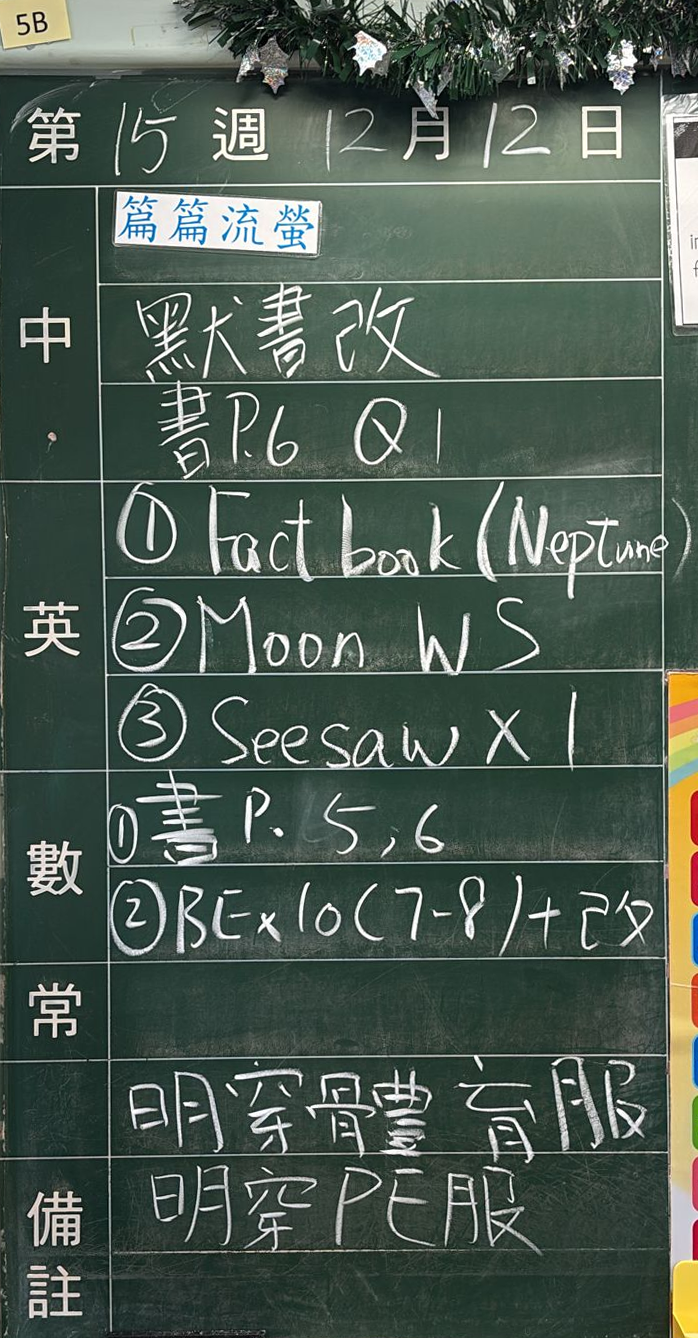 5B
第 15 週 12 月 12 日
中
篇篇流螢
默書改
書P.6 Q1
英
① Fact book (Neptune)
② Moon WS
③ Seesaw x 1
數
① 書 P. 5,6
② BE x 10 (7-8) + 改
常
明穿體育服
備註
明穿PE服